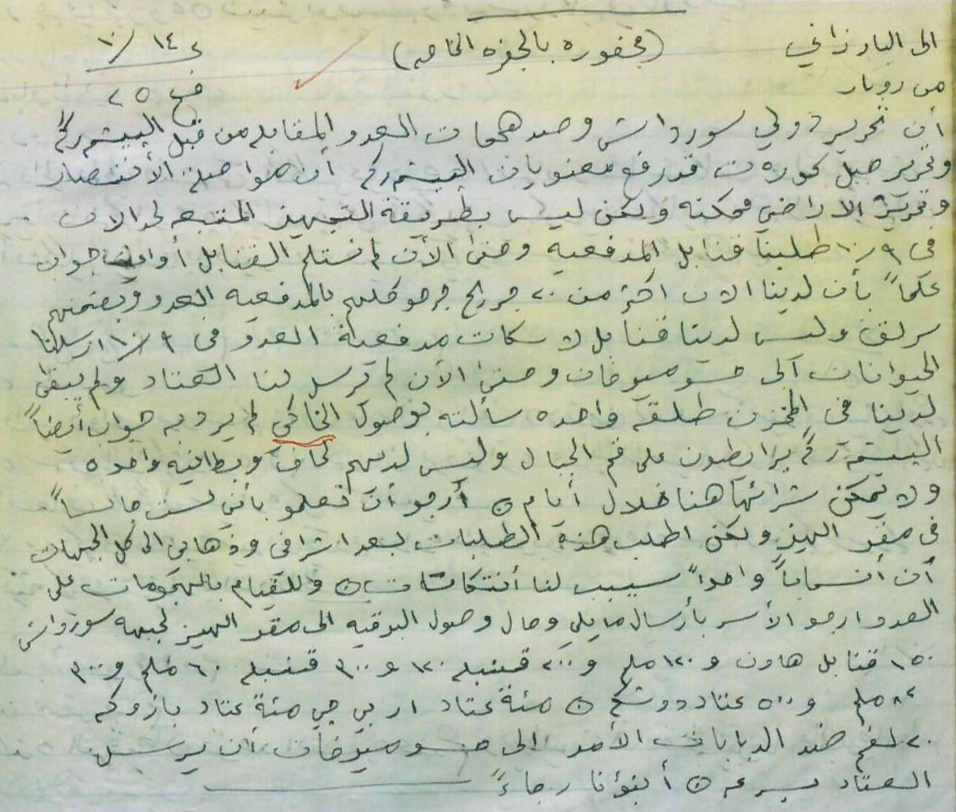 الى البارزاني (محفوره بالجفره الخاصه) ١٠/١٤ ع
من روبار فع ٢٥
أن تحرير دولي سورداش وصد هجمات العدو المقابله من قبل البيشمركه
وتحرير جبل كوره ت قد رفع معنويات البيشمركه أن مواصلة الأنتصار
وتحرير الاراضي ممكنه ولكن ليس بطريقة التجهيز المتبعه لحد الان
في ١٠/٩ طلبنا قنابل المدفعيه وحتى الأن لم نستلم القنابل أو اي جواب
علماً بأن لدينا الان اكثر من ٢٠ جريح جرحو كلهم بالمدفعيه العدو وبضمنهم
سرلق وليس لدينا قنابل لاسكات مدفعية العدو في ١٠/٩ ارسلنا
الحيوانات الى حسو ميرخان وحتى الأن لم ترسل لنا العتاد ولم يبقى
لدينا في المخزن طلقه واحده سألته بوصول الخاكي لم يرد به جواب أيضاً
البيشمركه يرابطون على قمم الجبال وليس لديهم لحاف وبطانيه واحده
ولا يمكن شرائها هنا خلال أيام ٥ أرجو أن تعلمو بأني لست جالساً
في مقر الهيز ولكن اطلب هذه الطلبات بعد اشرافي وذهابي الى كل الجبهات
أن أنسحاباً واحداً سيسبب لنا أنتكاسات ٥ وللقيام بالهجومات على
العدو ارجو الأسر بأرسال مايلي وحال وصول البرقيه الى مقر الهيز لجبهه سورداش
١٥٠ قنابل هاون و ١٢٠ ملم و ٢٠٠ قنبله ١٢٠ و ٣٠٠ قنبله ٦٠ ملم و ٣٠٠
٨٢ ملم و ٥٠٠ عتاد دوشكه ٥ مئة عتاد ار بي جي مئة عتاد بازوكه
٢٠ لغم ضد الدبابات الأمر الى حسو ميرخان أن يرسل
العتاد بسرعه ٥ أنبؤنا رجاءً